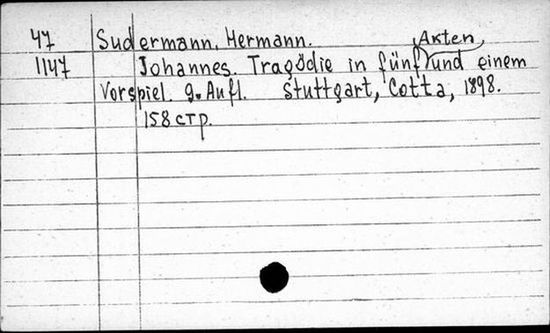 47 Sudermann, Hermann.
1147 Johannes. Tragödie in fünf Akten und einem
Vorspiel. 9. Aufl. Stuttgart, Cotta, 1898.
158 стр.